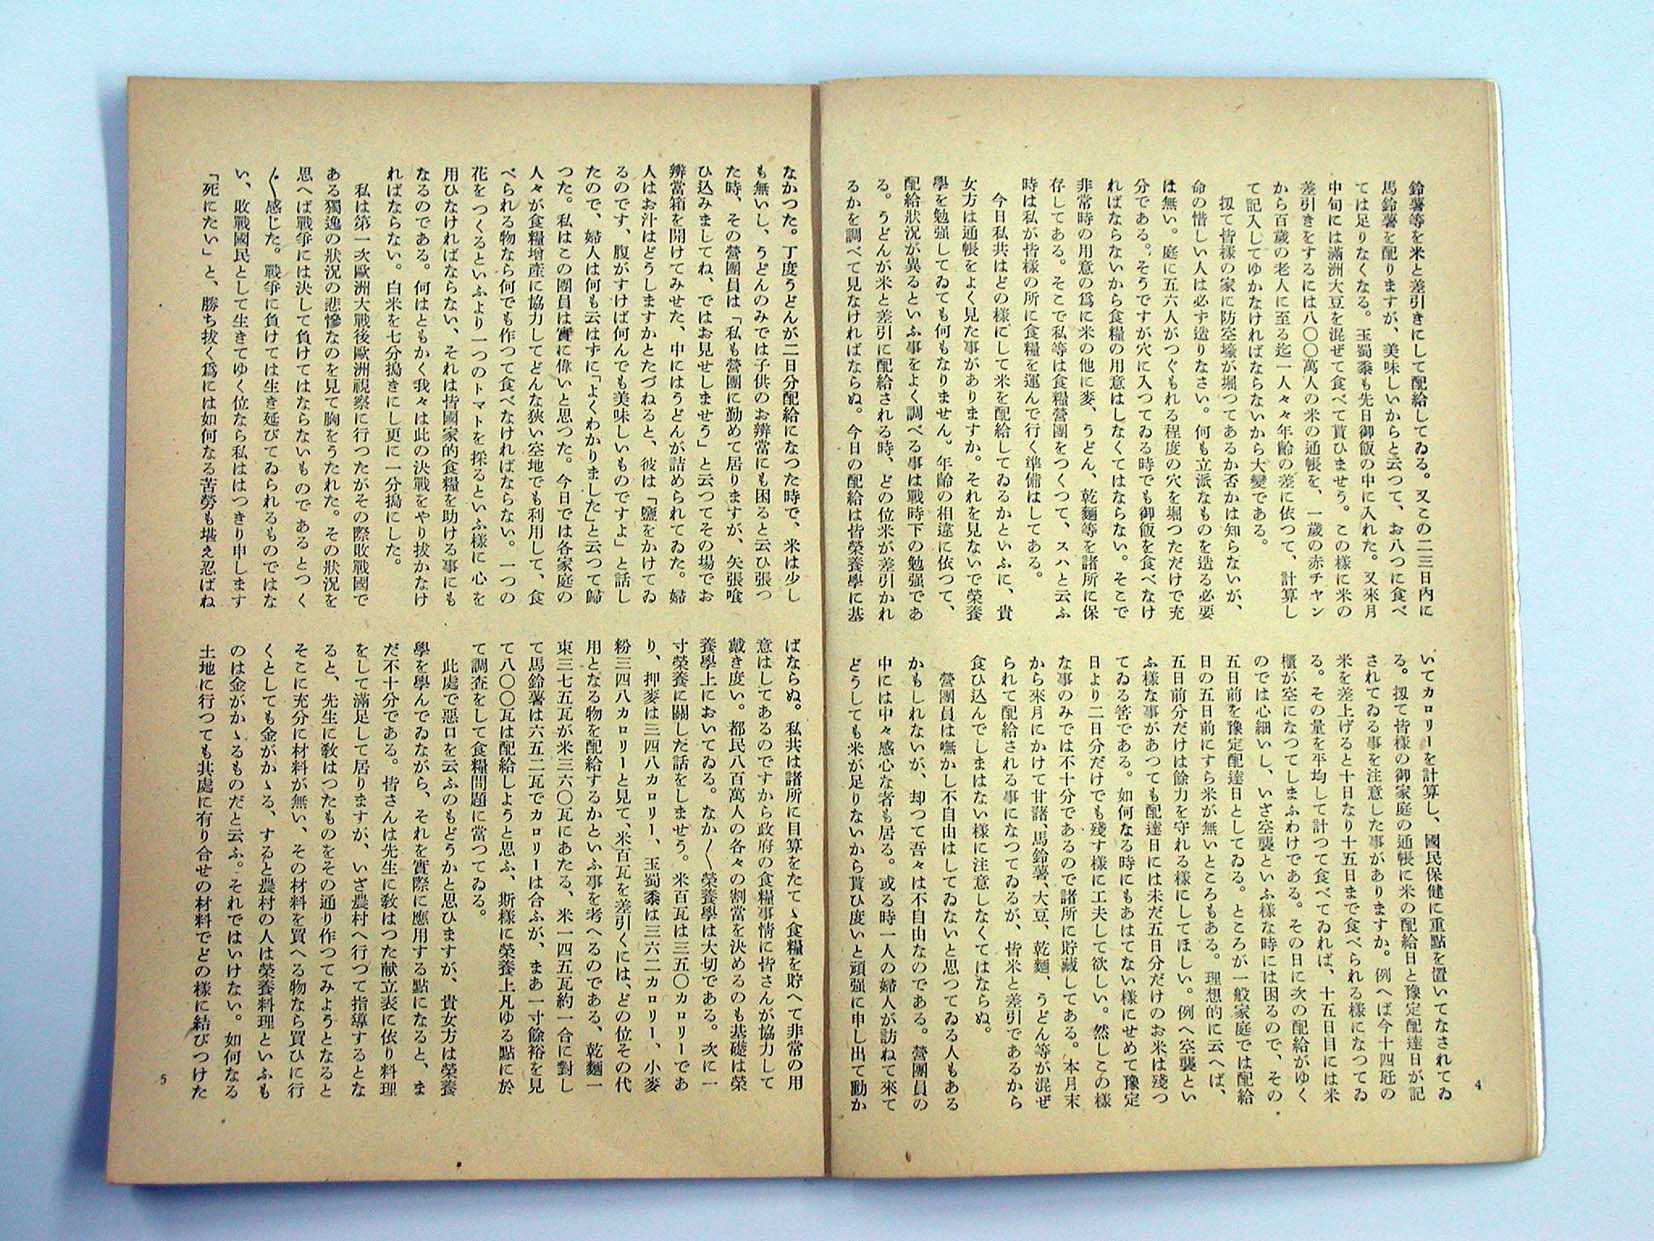 鈴薯等を米と差引きにして配給してゐる。又この二三日內に
馬鈴薯を配りますが、美味しいからと云つて、お八つに食べ
ては足りなくなる。玉蜀黍も先日御飯の中に入れた。又來月
中旬には滿洲大豆を混ぜて食べて貰ひませう。この樣に米の
差引きをするには八〇〇萬人の米の通帳を、一歲の赤チヤン
から百歲の老人に至る迄一人々々年齡の差に依つて、計算し
て記入してゆかなければならないから大變である。
扨て皆樣の家に防空壕が堀つてあるか否かは知らないが、
命の惜しい人は必ず造りなさい。何も立派なものを造る必要
は無い。庭に五六人がつぐもれる程度の穴を堀つただけで充
分である。そうですが穴に入つてゐる時でも御飯を食べなけ
ればならないから食糧の用意はしなくてはならない。そこで
非常時の用意の爲に米の他に麥、うどん、乾麵等を諸所に保
存してある。そこで私等は食糧營團をつくつて、スハと云ふ
時は私が皆樣の所に食糧を運んで行く準備はしてある。
今日私共はどの樣にして米を配給してゐるかといふに、貴
女方は通帳をよく見た事がありますか。それを見ないで榮養
學を勉强してゐても何もなりません。年齡の相違に依つて、
配給狀況が異るといふ事をよく調べる事は戰時下の勉强であ
る。うどんが米と差引に配給される時、どの位米が差引かれ
るかを調べて見なければならぬ。今日の配給は皆榮養學に基
いてカロリーを計算し、國民保健に重點を置いてなされてゐ
る。扨て皆樣の御家庭の通帳に米の配給日と豫定配達日が記
されてゐる事を注意した事がありますか。例へば今十四瓩の
米を差上げると十日なり十五日まで食べられる樣になつてゐ
る。その量を平均して計つて食べてゐれば、十五日目には米
櫃が空になつてしまふわけである。その日に次の配給がゆく
のでは心細いし、いざ空襲といふ樣な時には困るので、その
五日前を豫定配達日としてゐる。ところが一般家庭では配給
日の五日前にすら米が無いところもある。理想的に云へば、
五日前分だけは餘力を守れる樣にしてほしい。例へ空襲とい
ふ樣な事があつても配達日には未だ五日分だけのお米は殘つ
てゐる筈である。如何なる時にもあはてない樣にせめて豫定
日より二日分だけでも殘す樣に工夫して欲しい。然しこの樣
な事のみでは不十分であるので諸所に貯藏してある。本月末
から來月にかけて甘諸、馬鈴薯、大豆、乾麵、うどん等が混ぜ
られて配給される事になつてゐるが、皆米と差引であるから
食ひ込んでしまはない樣に注意しなくてはならぬ。
營團員は嘸かし不自由はしてゐないと思つてゐる人もある
かもしれないが、却つて吾々は不自由なのである。營團員の
中には中々感心な者も居る。或る時一人の婦人が訪ねて來て
どうしても米が足りないから貰ひ度いと頑强に申し出て動か
4
なかつた。丁度うどんが二日分配給になつた時で、米は少し
も無いし、うどんのみでは子供のお辨當にも困ると云ひ張つ
た時、その營團員は「私も營團に勤めて居りますが、矢張喰
ひ込みましてね、ではお見せしませう」と云つてその場でお
辨當箱を開けてみせた、中にはうどんが詰められてゐた。婦
人はお汁はどうしますかとたづねると、彼は「鹽をかけてゐ
るのです、腹がすけば何んでも美味しいものですよ」と話し
たので、婦人は何も云はずに「よくわかりました」と云つて歸
つた。私はこの團員は實に偉いと思つた。今日では各家庭の
人々が食糧增產に協力してどんな狹い空地でも利用して、食
べられる物なら何でも作つて食べなければならない。一つの
花をつくるといふより一つのトマトを採るといふ樣に心を
用ひなければならない、それは皆國家的食糧を助ける事にも
なるのである。何はともかく我々は此の決戰をやり拔かなけ
ればならない。白米を七分搗きにし更に一分搗にした。
私は第一次歐洲大戰後歐洲視察に行つたがその際敗戰國で
ある獨逸の狀況の悲慘なのを見て胸をうたれた。その狀況を
思へば戰爭には決して負けてはならないものであるとつく
〴〵感じた。戰爭に負けては生き延びてゐられるものではな
い、敗戰國民として生きてゆく位なら私ははつきり申します
「死にたい」と、勝ち拔く爲には如何なる苦勞も堪え忍ばね
ばならぬ。私共は諸所に目算をたてゝ食糧を貯へて非常の用
意はしてあるのですから政府の食糧事情に皆さんが協力して
戴き度い。都民八百萬人の各々の割當を決めるのも基礎は榮
養學上においてゐる。なか〳〵榮養學は大切である。次に一
寸榮養に關した話をしませう。米百瓦は三五〇カロリーであ
り、押麥は三四八カロリー、玉蜀黍は三六二カロリー、小麥
粉三四八カロリーと見て、米百瓦を差引くには、どの位その代
用となる物を配給するかといふ事を考へるのである、乾麵一
束三七五瓦が米三六〇瓦にあたる、米一四五瓦約一合に對し
て馬鈴薯は六五二瓦でカロリーは合ふが、まあ一寸餘裕を見
て八〇〇瓦は配給しようと思ふ、斯樣に榮養上凡ゆる點に於
て調査をして食糧問題に當つてゐる。
此處で惡口を云ふのもどうかと思ひますが、貴女方は榮養
學を學んでゐながら、それを實際に應用する點になると、ま
だ不十分である。皆さんは先生に敎はつた献立表に依り料理
をして滿足して居りますが、いざ農村へ行つて指導するとな
ると、先生に敎はつたものをその通り作つてみようとなると
そこに充分に材料が無い、その材料を買へる物なら買ひに行
くとしても金がかゝる、すると農村の人は榮養料理といふも
のは金がかゝるものだと云ふ。それではいけない。如何なる
土地に行つても其處に有り合せの材料でどの樣に結びつけた
5